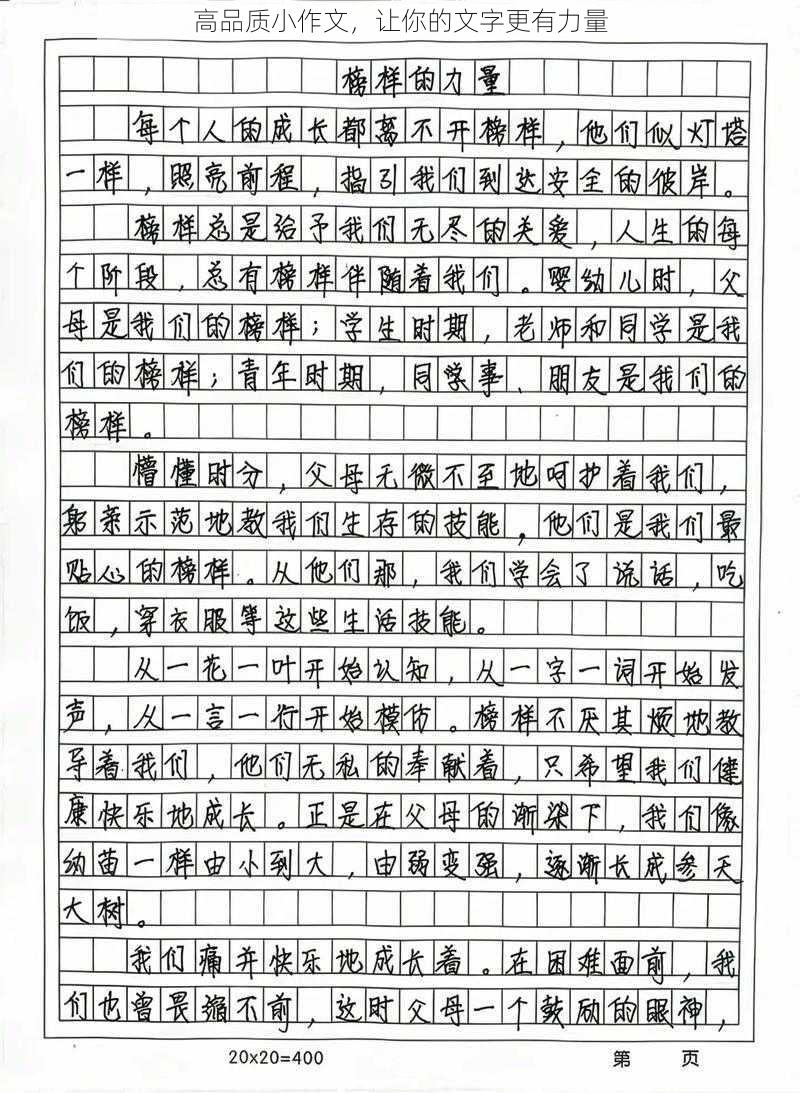 高品质小作文，让你的文字更有力量
榜样的力量
每个人的成长都离不开榜样，他们似灯塔
一样，照亮前程，指引我们到达安全的彼岸。
榜样总是给予我们无尽的关爱，人生的每
个阶段，总有榜样伴随着我们。婴幼儿时，父
母是我们的榜样；学生时期，老师和同学是我
们的榜样；青年时期，同学事、朋友是我们的
榜样。
懵懂时分，父母无微不至地呵护着我们，
躬亲示范地教我们生存的技能，他们是我们最
贴心的榜样。从他们那，我们学会了说话，吃
饭，穿衣服等这些生活技能。
从一花一叶开始认知，从一字一词开始发
声，从一言一行开始模仿。榜样不厌其烦地教
导着我们，他们无私的奉献着，只希望我们健
康快乐地成长。正是在父母的渐染下，我们像
幼苗一样由小到大，由弱变强，逐渐长成参天
大树。
我们痛并快乐地成长着。在困难面前，我
们也曾畏缩不前，这时父母一个鼓励的眼神，
20×20=400
第 页